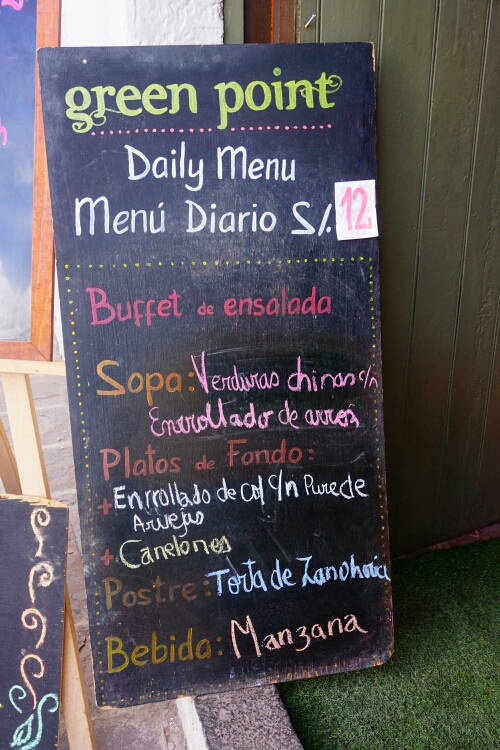 green point
Daily Menu
Menú Diario S/. 12
Buffet de ensalada
Sopa: Verduras chinas c/n
Enrrollado de arroz
Platos de Fondo:
+ Enrrollado de col c/n Pure de
Arvejas
+ Canelones
Postre: Torta de Zanahoria
Bebida: Manzana